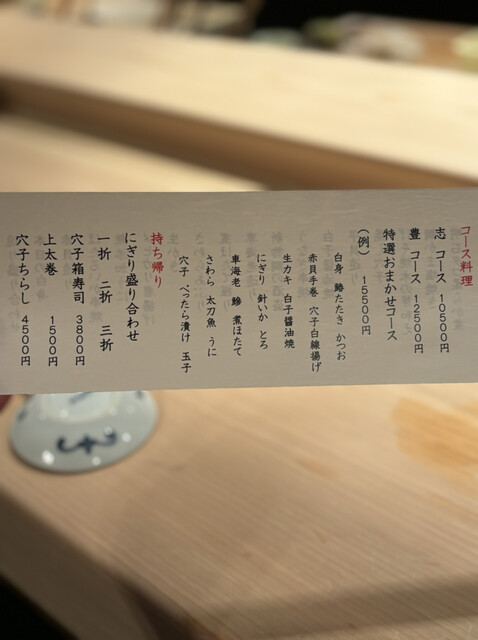 コース料理
志 コース 10500円
豊 コース 12500円
特選おまかせコース
(例) 15500円
白身 鯵たたき かつお
赤貝手巻 穴子白線揚げ
生カキ 白子醤油焼
にぎり 針いか とろ
車海老 鯵 煮ほたて
さわら 太刀魚 うに
穴子 べったら漬け 玉子
持ち帰り
にぎり盛り合わせ
一折 二折 三折
穴子箱寿司 3800円
上太巻 1500円
穴子ちらし 4500円